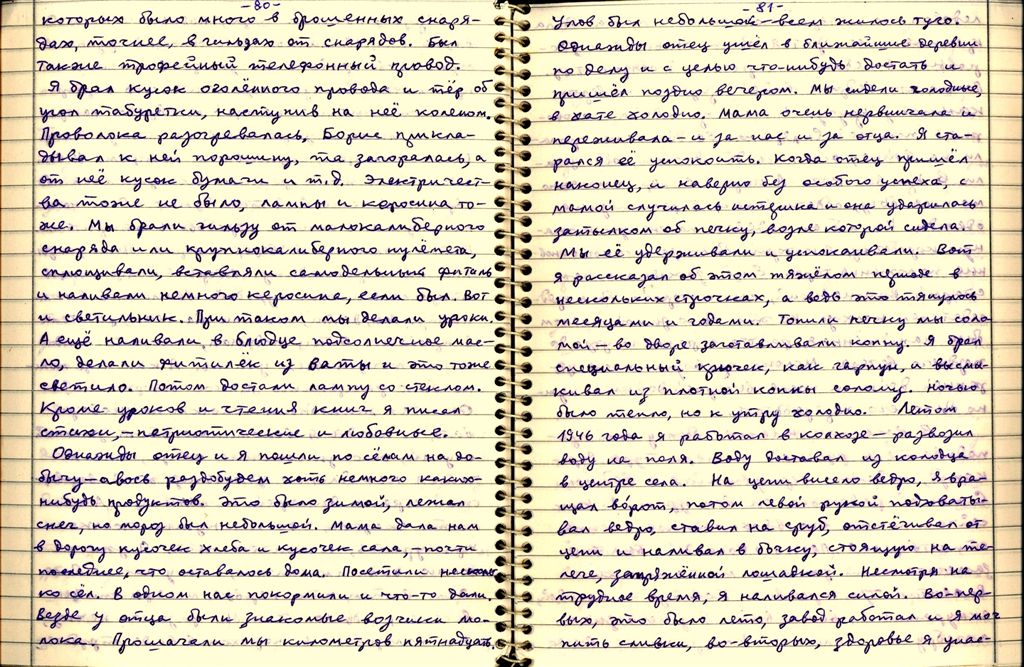 -80-
которых было много в брошенных снаря-
дах, точнее, в гильзах от снарядов. Был
также трофейный телефонный провод.
Я брал кусок оголённого провода и тёр об
угол табуретки, наступив на неё коленом.
Проволока разогревалась, Борис прикла-
дывал к ней порошину, та загоралась, а
от неё кусок бумаги и т.д. Электричест-
ва тоже не было, лампы и керосина то-
же. Мы брали гильзу от малокалиберного
снаряда или крупнокалиберного пулёмета,
сплющивали, вставляли самодельный фитиль
и наливали немного керосина, если был. Вот
и светильник. При таком мы делали уроки.
А ещё наливали в блюдце подсолнечное мас-
ло, делали фитилёк из ваты и это тоже
светило. Потом достали лампу со стеклом.
Кроме уроков и чтения книг я писал
стихи, – патриотические и любовные.
Однажды отец и я пошли по сёлам на до-
бычу – авось раздобудем хоть немного каких-
нибудь продуктов. Это было зимой, лежал
снег, но мороз был небольшой. Мама дала нам
в дорогу кусочек хлеба и кусочек сала, – почти
последнее, что оставалось дома. Посетили несколь-
ко сёл. В одном нас покормили и что-то дали.
Везде у отца были знакомые возчики мо-
лока. Прошагали мы километров пятнадцать.
-81-
Улов был небольшой – всем жилось туго.
Однажды отец ушёл в ближайшие деревни
по делу и с целью что-нибудь достать и
пришёл поздно вечером. Мы сидели холодные,
в хате холодно. Мама очень нервничала и
переживала – и за нас и за отца. Я ста-
рался её успокоить. Когда отец пришёл
наконец, и наверно без особого успеха, с
мамой случилась истерика и она ударилась
затылком об печку, возле которой сидела.
Мы её удерживали и успокаивали. Вот
я рассказал об этом тяжёлом периоде в
нескольких строчках, а ведь это тянулось
месяцами и годами. Топили печку мы соло
мой – во дворе заготавливали копну. Я брал
специальный крючек, как гарпун, и высма-
кивал из плотной копны солому. Ночью
было тепло, но к утру холодно. Летом
1946 года я работал в колхозе – развозил
воду на поля. Воду доставал из колодца
в центре села. На цепи висело ведро, я вра-
щал во́рот, потом левой рукой подхваты-
вал ведро, ставил на сруб, отстёгивал от
цепи и наливал в бочку, стоящую на те-
леге, запряжённой лошадкой. Несмотря на
трудное время, я наливался силой. Во-пер-
вых, это было лето, завод работал и я мог
пить сливки, во-вторых, здоровье я унас-